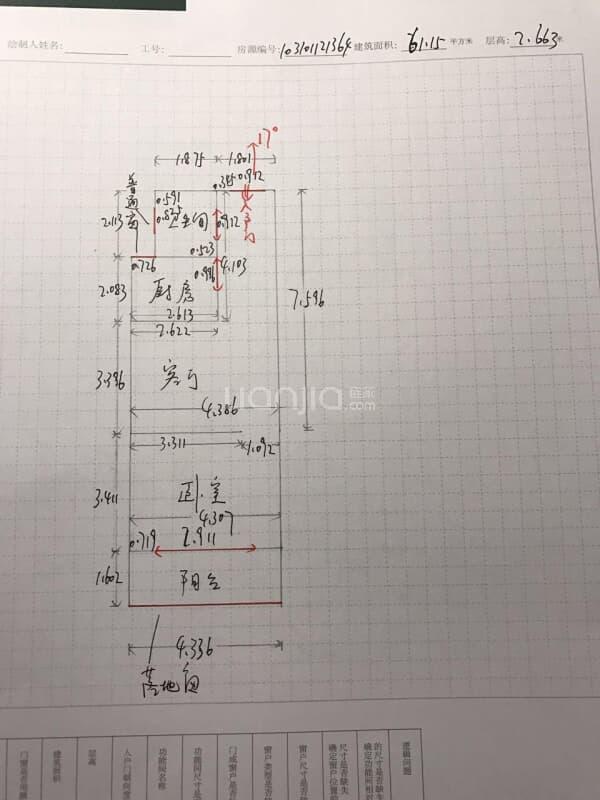 绘制人姓名: 工号: 房源编号: 103101121364 建筑面积: 61.15 平方米 层高: 2.663 米
17°
1.875 1.801
普通窗
0.345 0.912
入户门
0.591
0.825
卫生间
0.912
2.113
0.523
0.726
0.996
4.103
2.083
厨房
2.613
2.622
7.596
3.396
客厅
lianjia.com 链家
4.386
3.311 1.092
3.411
卧室
4.307
0.719 2.911
1.602
阳台
4.336
落地窗
门窗是否准确
建筑面积
层高
入户门朝向度
功能间名称
功能间尺寸是
门或窗户是否
窗户类型是否
窗户尺寸是否
尺寸是否缺失
确定窗户位置的
的尺寸是否缺失
确定功能间相对
逻辑问题